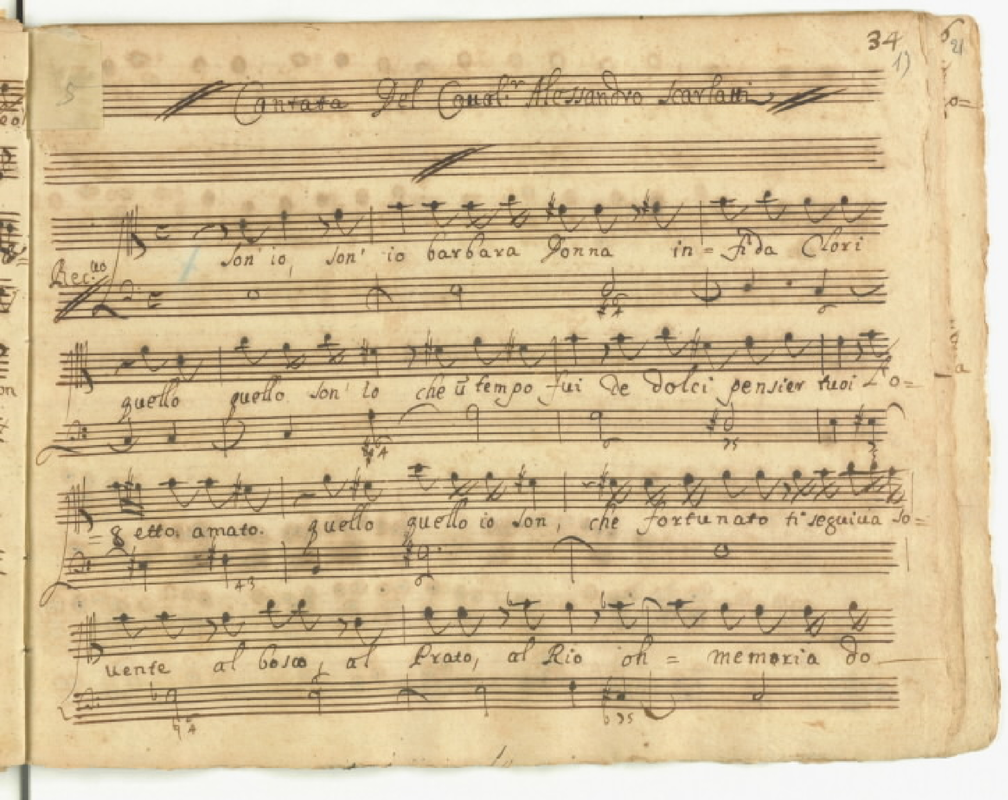 34
Cantata Del Caval.r Alessandro Scarlatti
Son' io, son' io barbara Donna in = fida Clori
quello quello son' io che ũ tempo fui de dolci pensier tuoi L'o=
= getto amato. quello quello io son, che fortunato ti seguiua so=
uente al bosco, al Prato, al Rio oh = memoria do